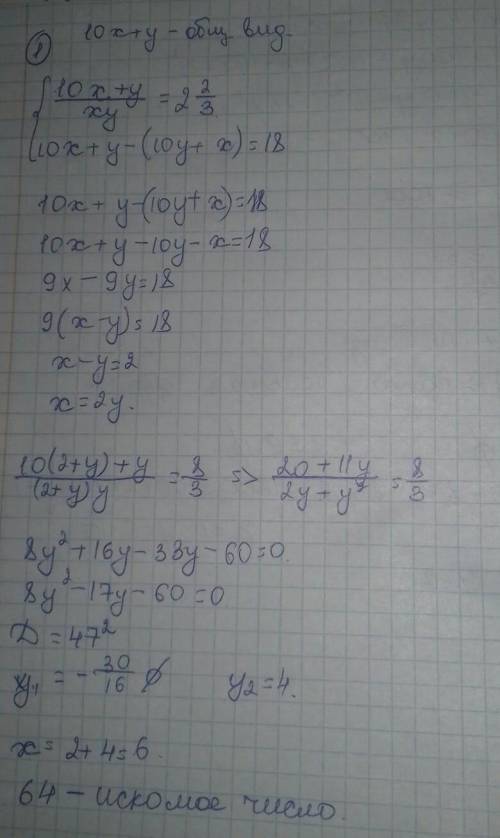 ① 10x+y – общ. вид.
{ (10x+y)/(xy) = 2 2/3
10x+y-(10y+x)=18
10x+y-(10y+x)=18
10x+y-10y-x=18
9x-9y=18
9(x-y)=18
x-y=2
x=2y.
(10(2+y)+y)/((2+y)y) = 8/3 => (20+11y)/(2y+y²) = 8/3
8y²+16y-33y-60=0
8y²-17y-60=0
D=47²
y₁ = -30/16 ∅ y₂=4.
x=2+4=6.
64 – искомое число.